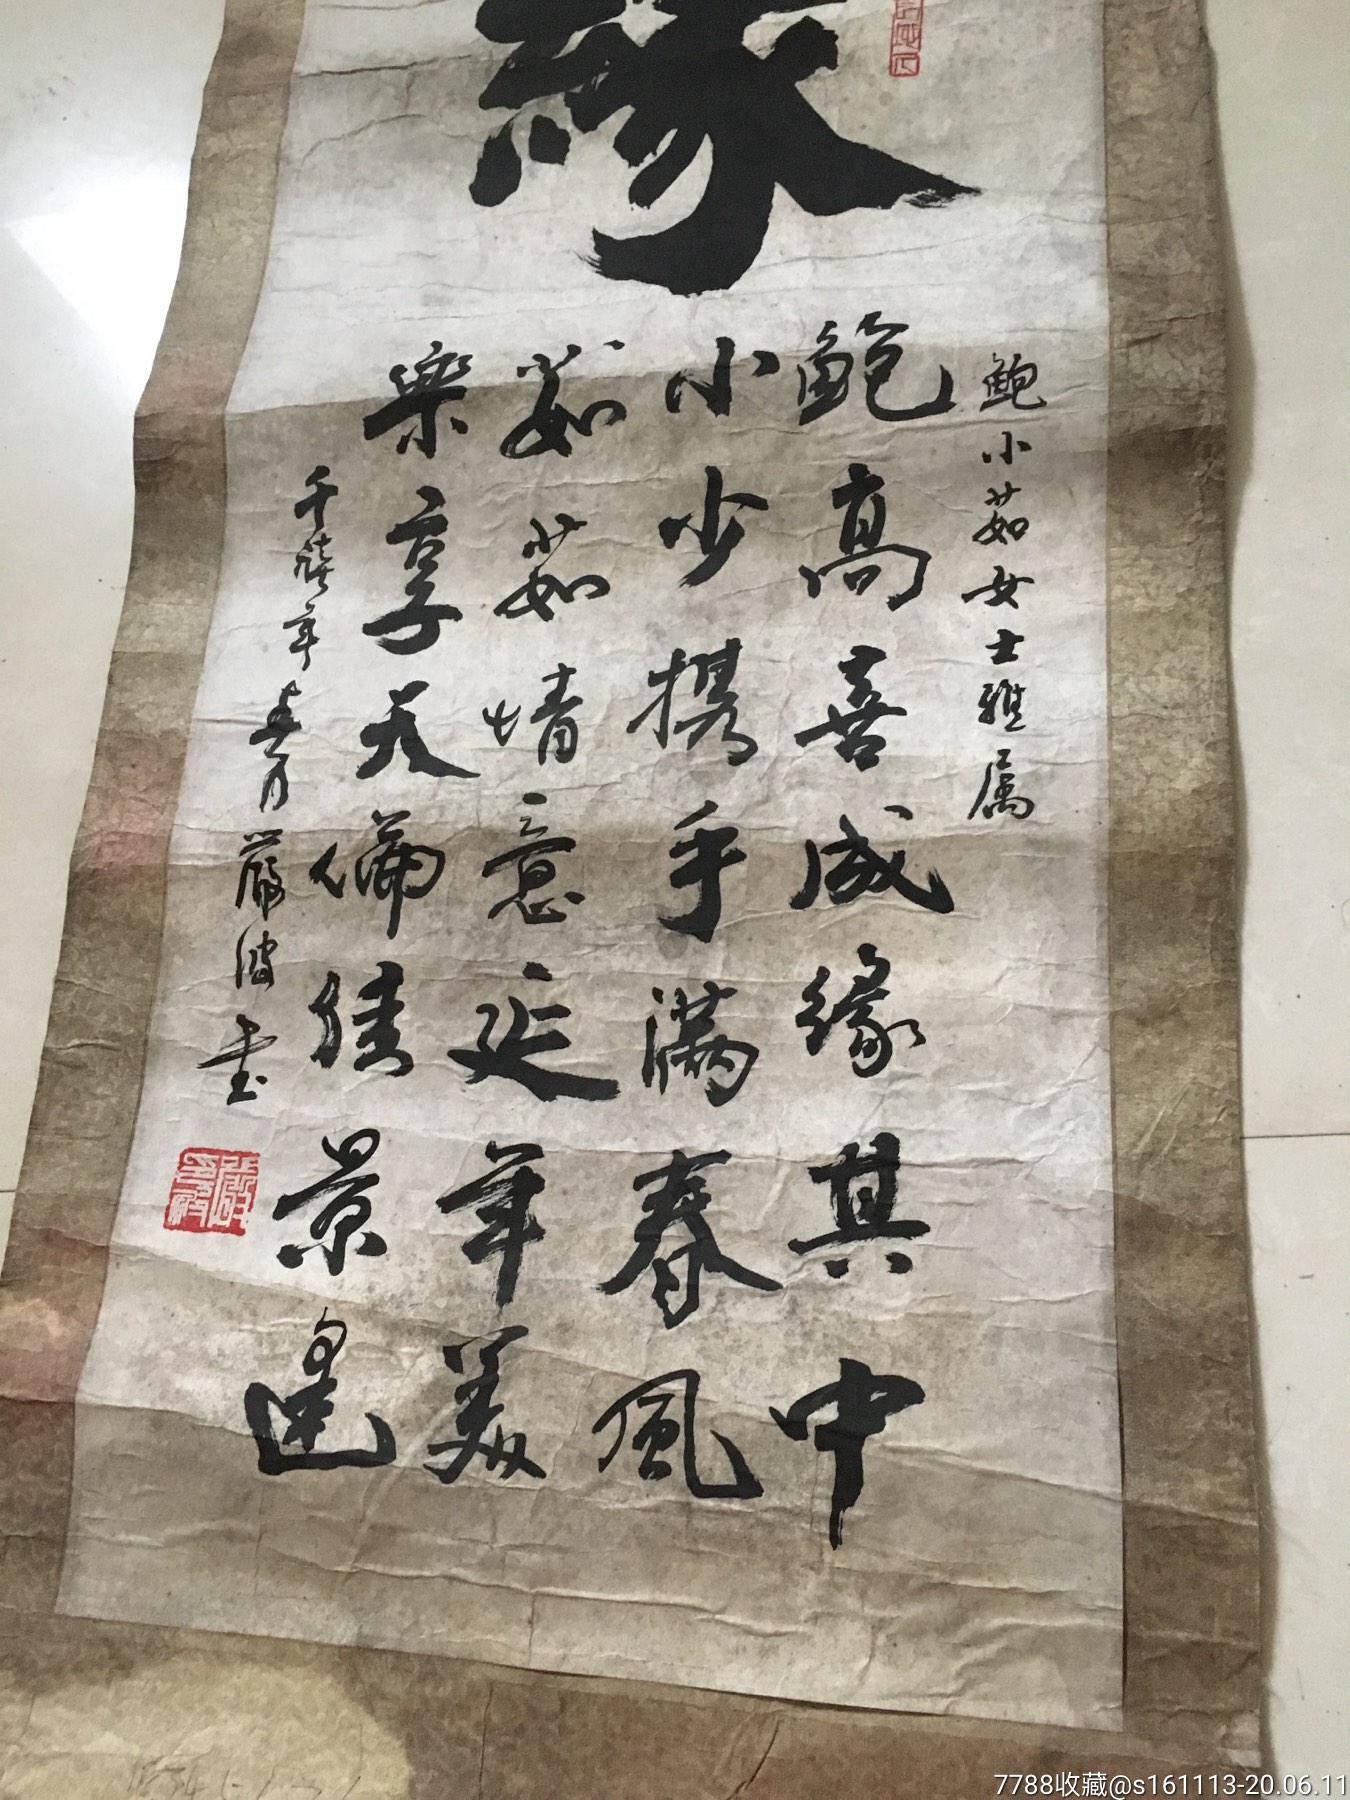 緣
鮑小茹女士雅属
鮑高喜成緣其中
小少携手满春風
茹茹情意延年美
樂享天倫佳景
千禧年春月嚴波書
7788收藏@s161113-20.06.11